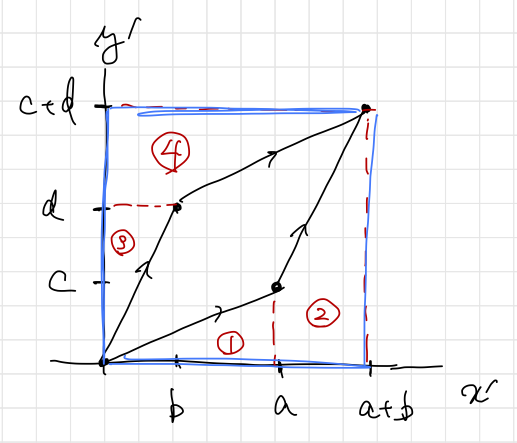 y'
c+d
④
d
③
c
②
①
b
a
a+b
x'